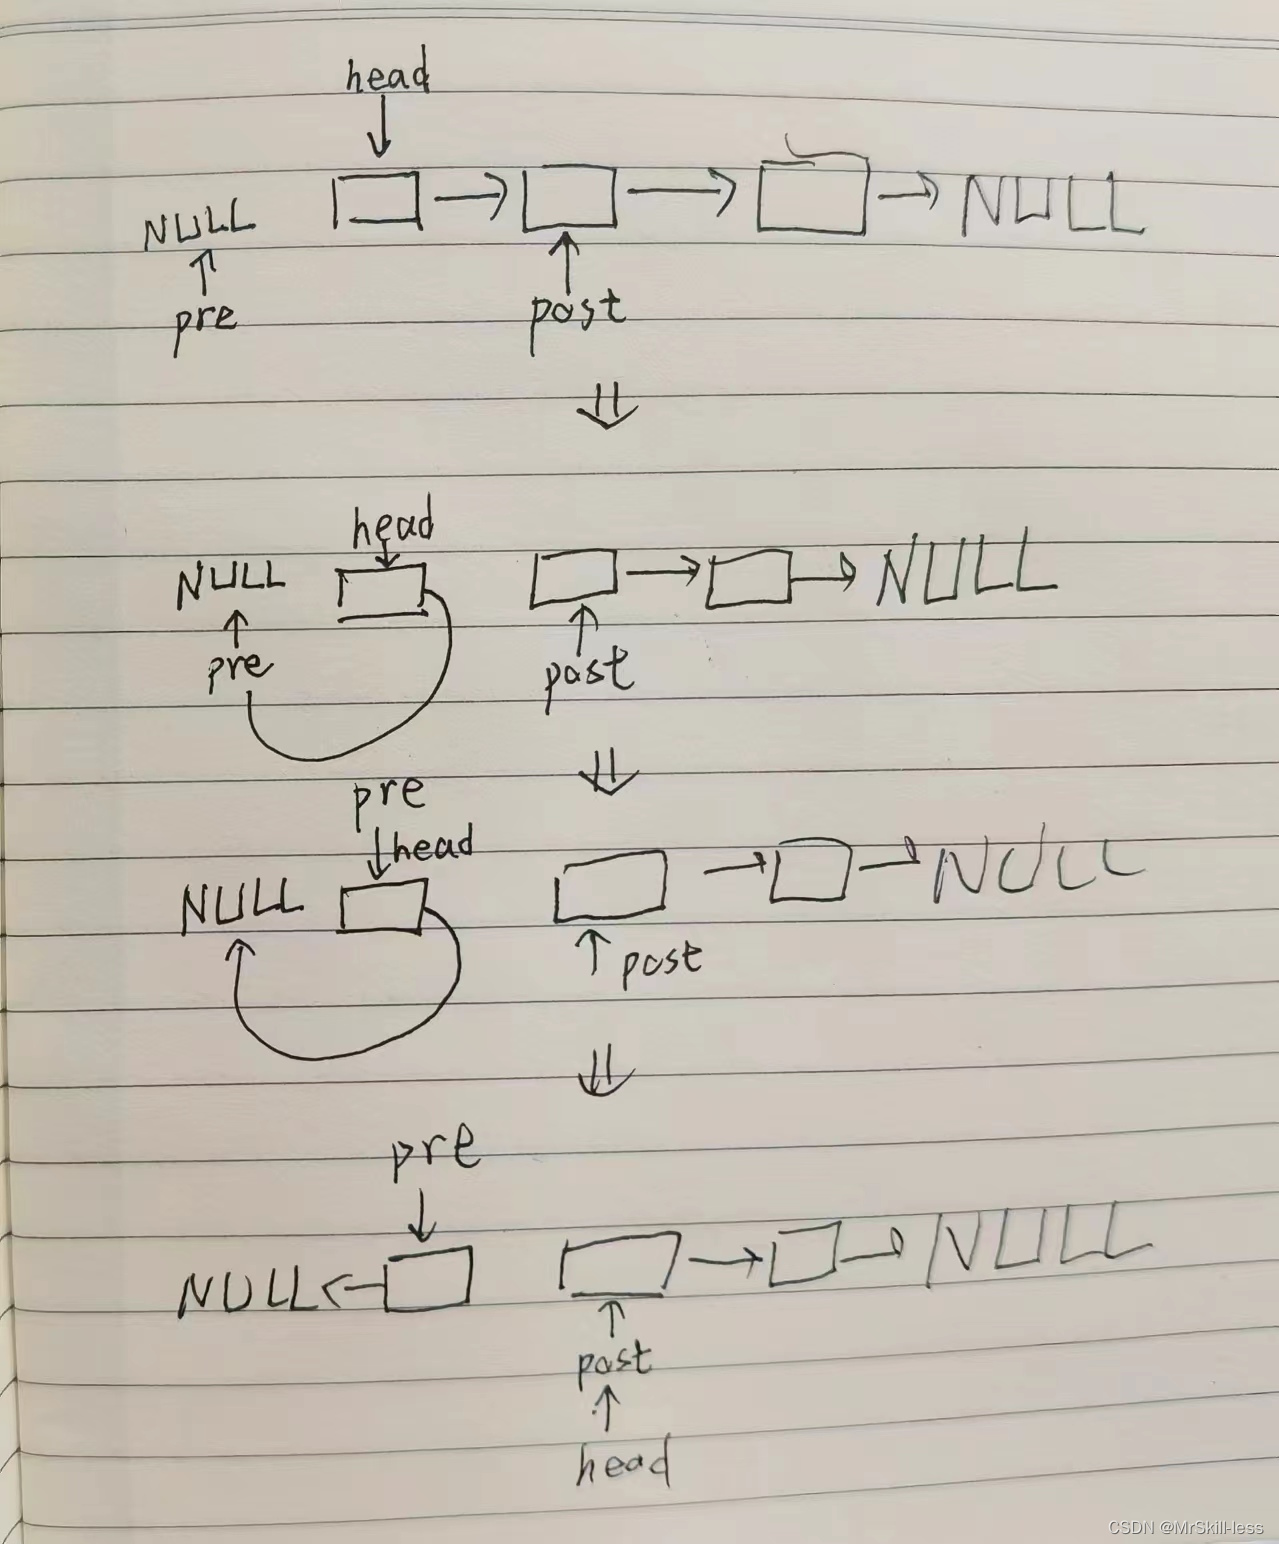 head
NULL NULL
pre post
head
NULL NULL
pre post
pre
head
NULL NULL
post
pre
NULL NULL
post
head
CSDN @MrSkill-less